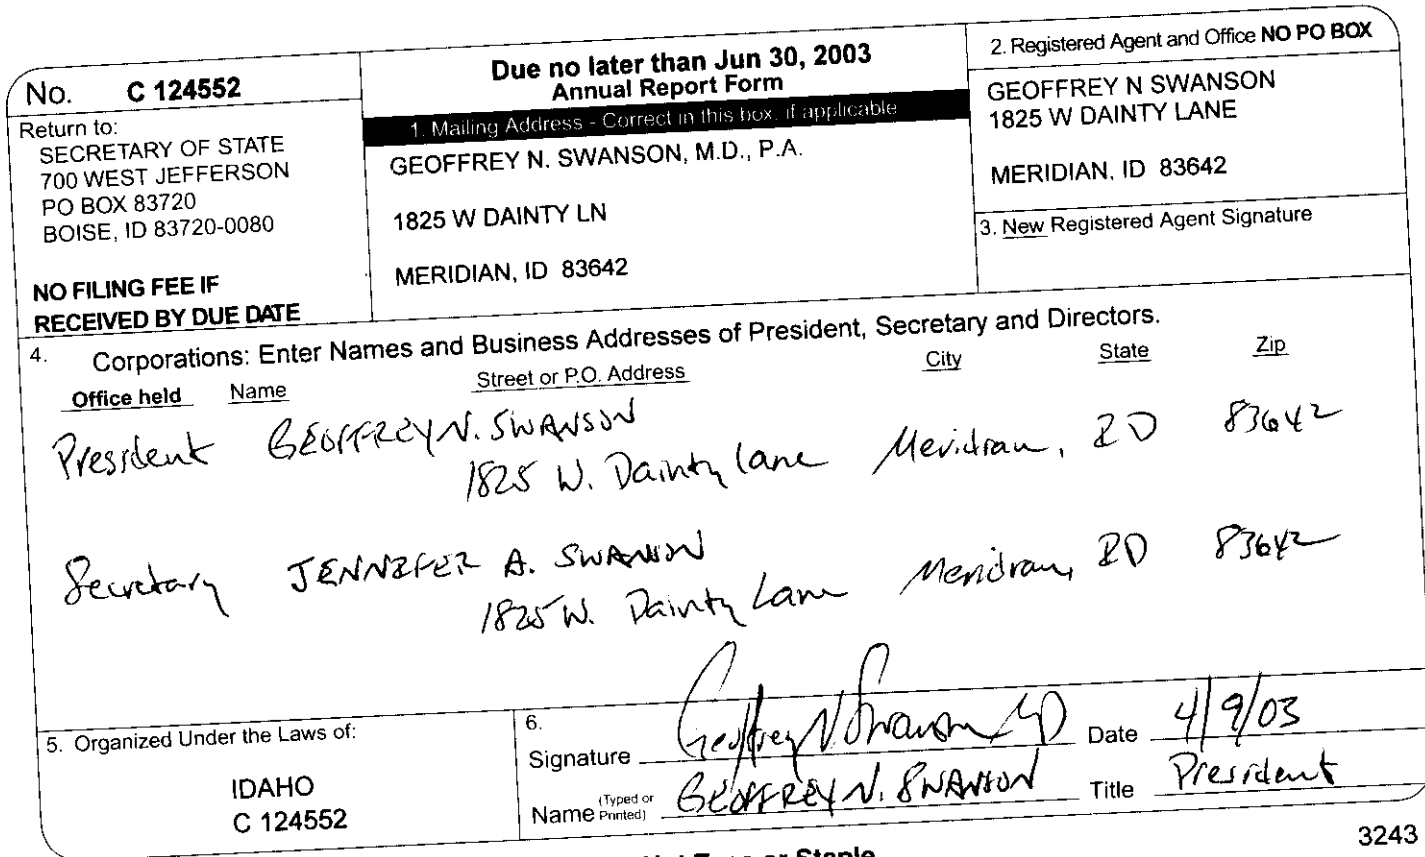 No. C 124552
Return to:
SECRETARY OF STATE
700 WEST JEFFERSON
PO BOX 83720
BOISE, ID 83720-0080
NO FILING FEE IF
RECEIVED BY DUE DATE
Due no later than Jun 30, 2003
Annual Report Form
1. Mailing Address - Correct in this box, if applicable
GEOFFREY N. SWANSON, M.D., P.A.
1825 W DAINTY LN
MERIDIAN, ID 83642
2. Registered Agent and Office NO PO BOX
GEOFFREY N SWANSON
1825 W DAINTY LANE
MERIDIAN, ID 83642
3. New Registered Agent Signature
4. Corporations: Enter Names and Business Addresses of President, Secretary and Directors.
Office held Name Street or P.O. Address City State Zip
President GEOFFREY N. SWANSON
1825 W. Dainty Lane Meridian, ID 83642
Secretary JENNIFER A. SWANSON
1825 W. Dainty Lane Meridian, ID 83642
5. Organized Under the Laws of:
IDAHO
C 124552
6.
Signature Geoffrey N Swanson MD Date 4/9/03
Name (Typed or Printed) GEOFFREY N. SWANSON Title President
or Staple
3243